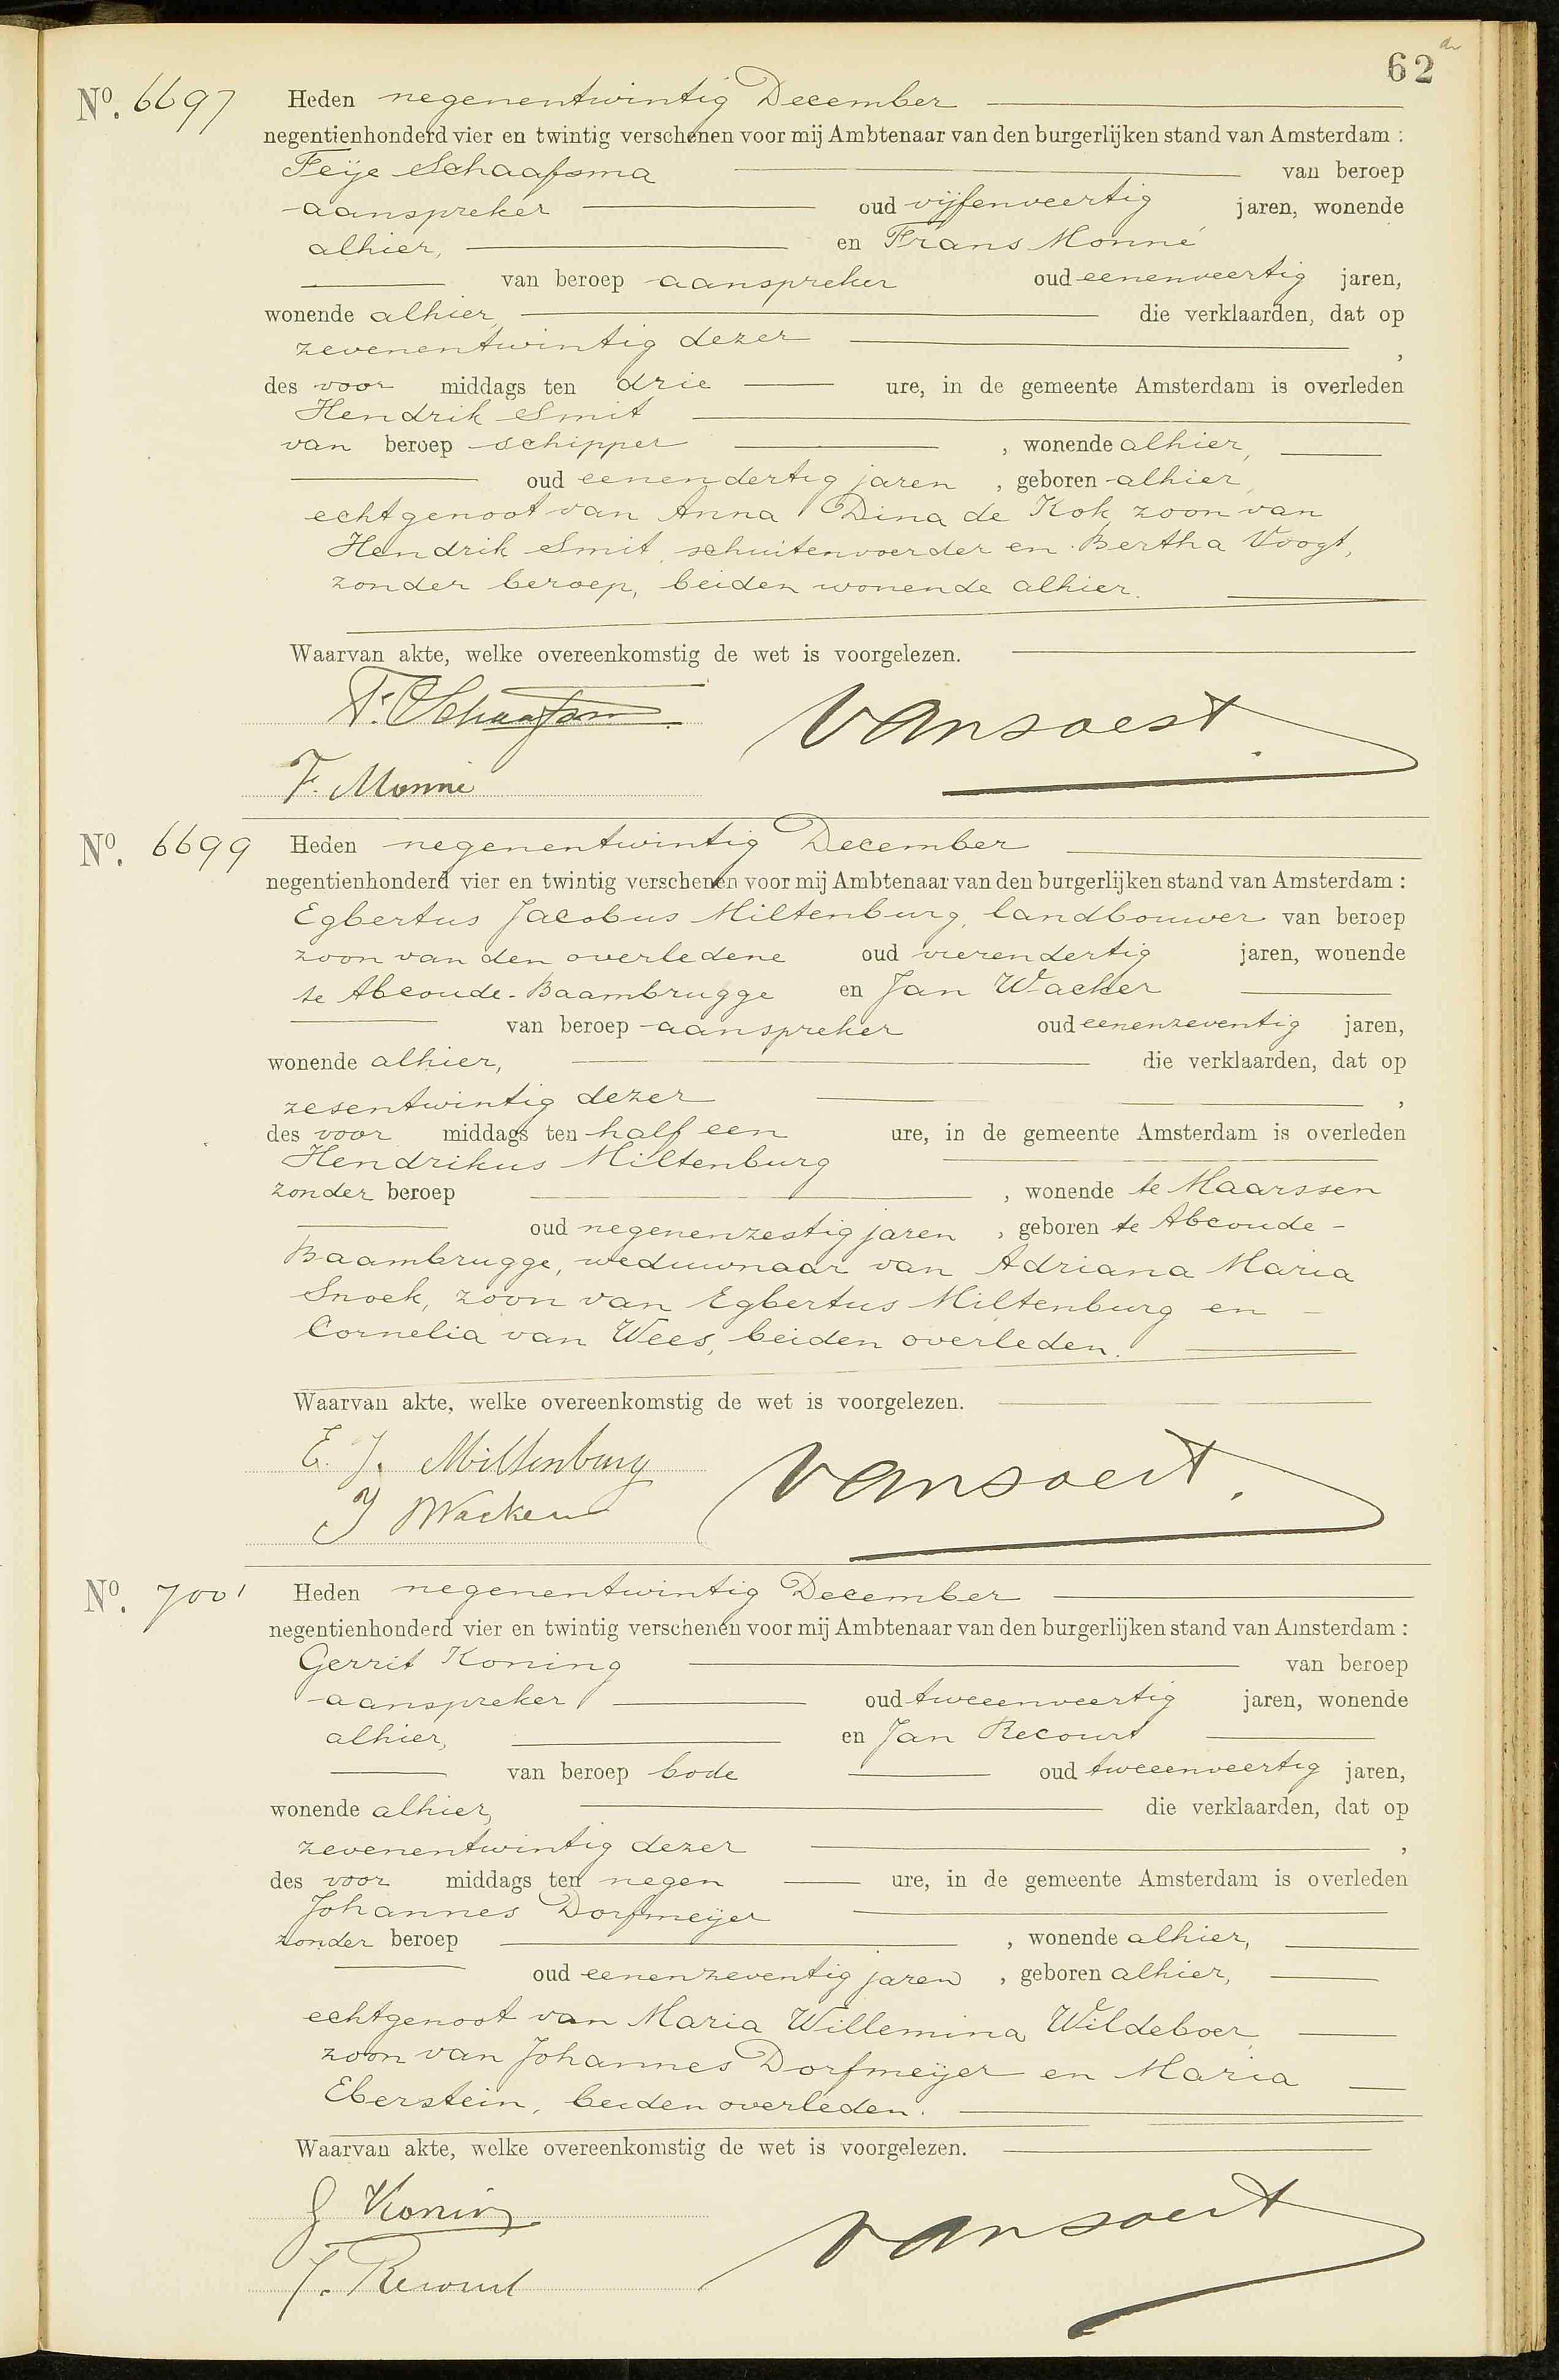 62
Nº. 6697 Heden negenentwintig December
negentienhonderd vier en twintig verschenen voor mij Ambtenaar van den burgerlijken stand van Amsterdam :
Feije Schaafsma van beroep
aanspreker oud vijfenveertig jaren, wonende
alhier, en Frans Monné
van beroep aanspreker oud eenenveertig jaren,
wonende alhier, die verklaarden, dat op
zevenentwintig dezer ,
des voor middags ten drie ure, in de gemeente Amsterdam is overleden
Hendrik Smit
van beroep schipper , wonende alhier,
oud eenendertig jaren , geboren alhier,
echtgenoot van Anna Dina de Kok, zoon van
Hendrik Smit, schuitenvoerder en Bertha Voogt,
zonder beroep, beiden wonende alhier.
Waarvan akte, welke overeenkomstig de wet is voorgelezen.
F. Schaafsma vansoest
F. Monné
Nº. 6699 Heden negenentwintig December
negentienhonderd vier en twintig verschenen voor mij Ambtenaar van den burgerlijken stand van Amsterdam :
Egbertus Jacobus Miltenburg, landbouwer van beroep
zoon van den overledene oud vierendertig jaren, wonende
te Abcoude-Baambrugge en Jan Wacker
van beroep aanspreker oud eenenzeventig jaren,
wonende alhier, die verklaarden, dat op
zesentwintig dezer ,
des voor middags ten half een ure, in de gemeente Amsterdam is overleden
Hendrikus Miltenburg
zonder beroep , wonende te Maarssen
oud negenenzestig jaren , geboren te Abcoude-
Baambrugge, weduwnaar van Adriana Maria
Snoek, zoon van Egbertus Miltenburg en
Cornelia van Wees, beiden overleden.
Waarvan akte, welke overeenkomstig de wet is voorgelezen.
E. J. Miltenburg vansoest.
J Wacker
Nº. 7001 Heden negenentwintig December
negentienhonderd vier en twintig verschenen voor mij Ambtenaar van den burgerlijken stand van Amsterdam :
Gerrit Koning van beroep
aanspreker oud tweeenveertig jaren, wonende
alhier, en Jan Recourt
van beroep bode oud tweeenveertig jaren,
wonende alhier, die verklaarden, dat op
zevenentwintig dezer ,
des voor middags ten negen ure, in de gemeente Amsterdam is overleden
Johannes Dorfmeijer
zonder beroep , wonende alhier,
oud eenenzeventig jaren , geboren alhier,
echtgenoot van Maria Willemina Wildeboer
zoon van Johannes Dorfmeijer en Maria
Eberstein, beiden overleden.
Waarvan akte, welke overeenkomstig de wet is voorgelezen.
G Koning vansoest
J. Recourt